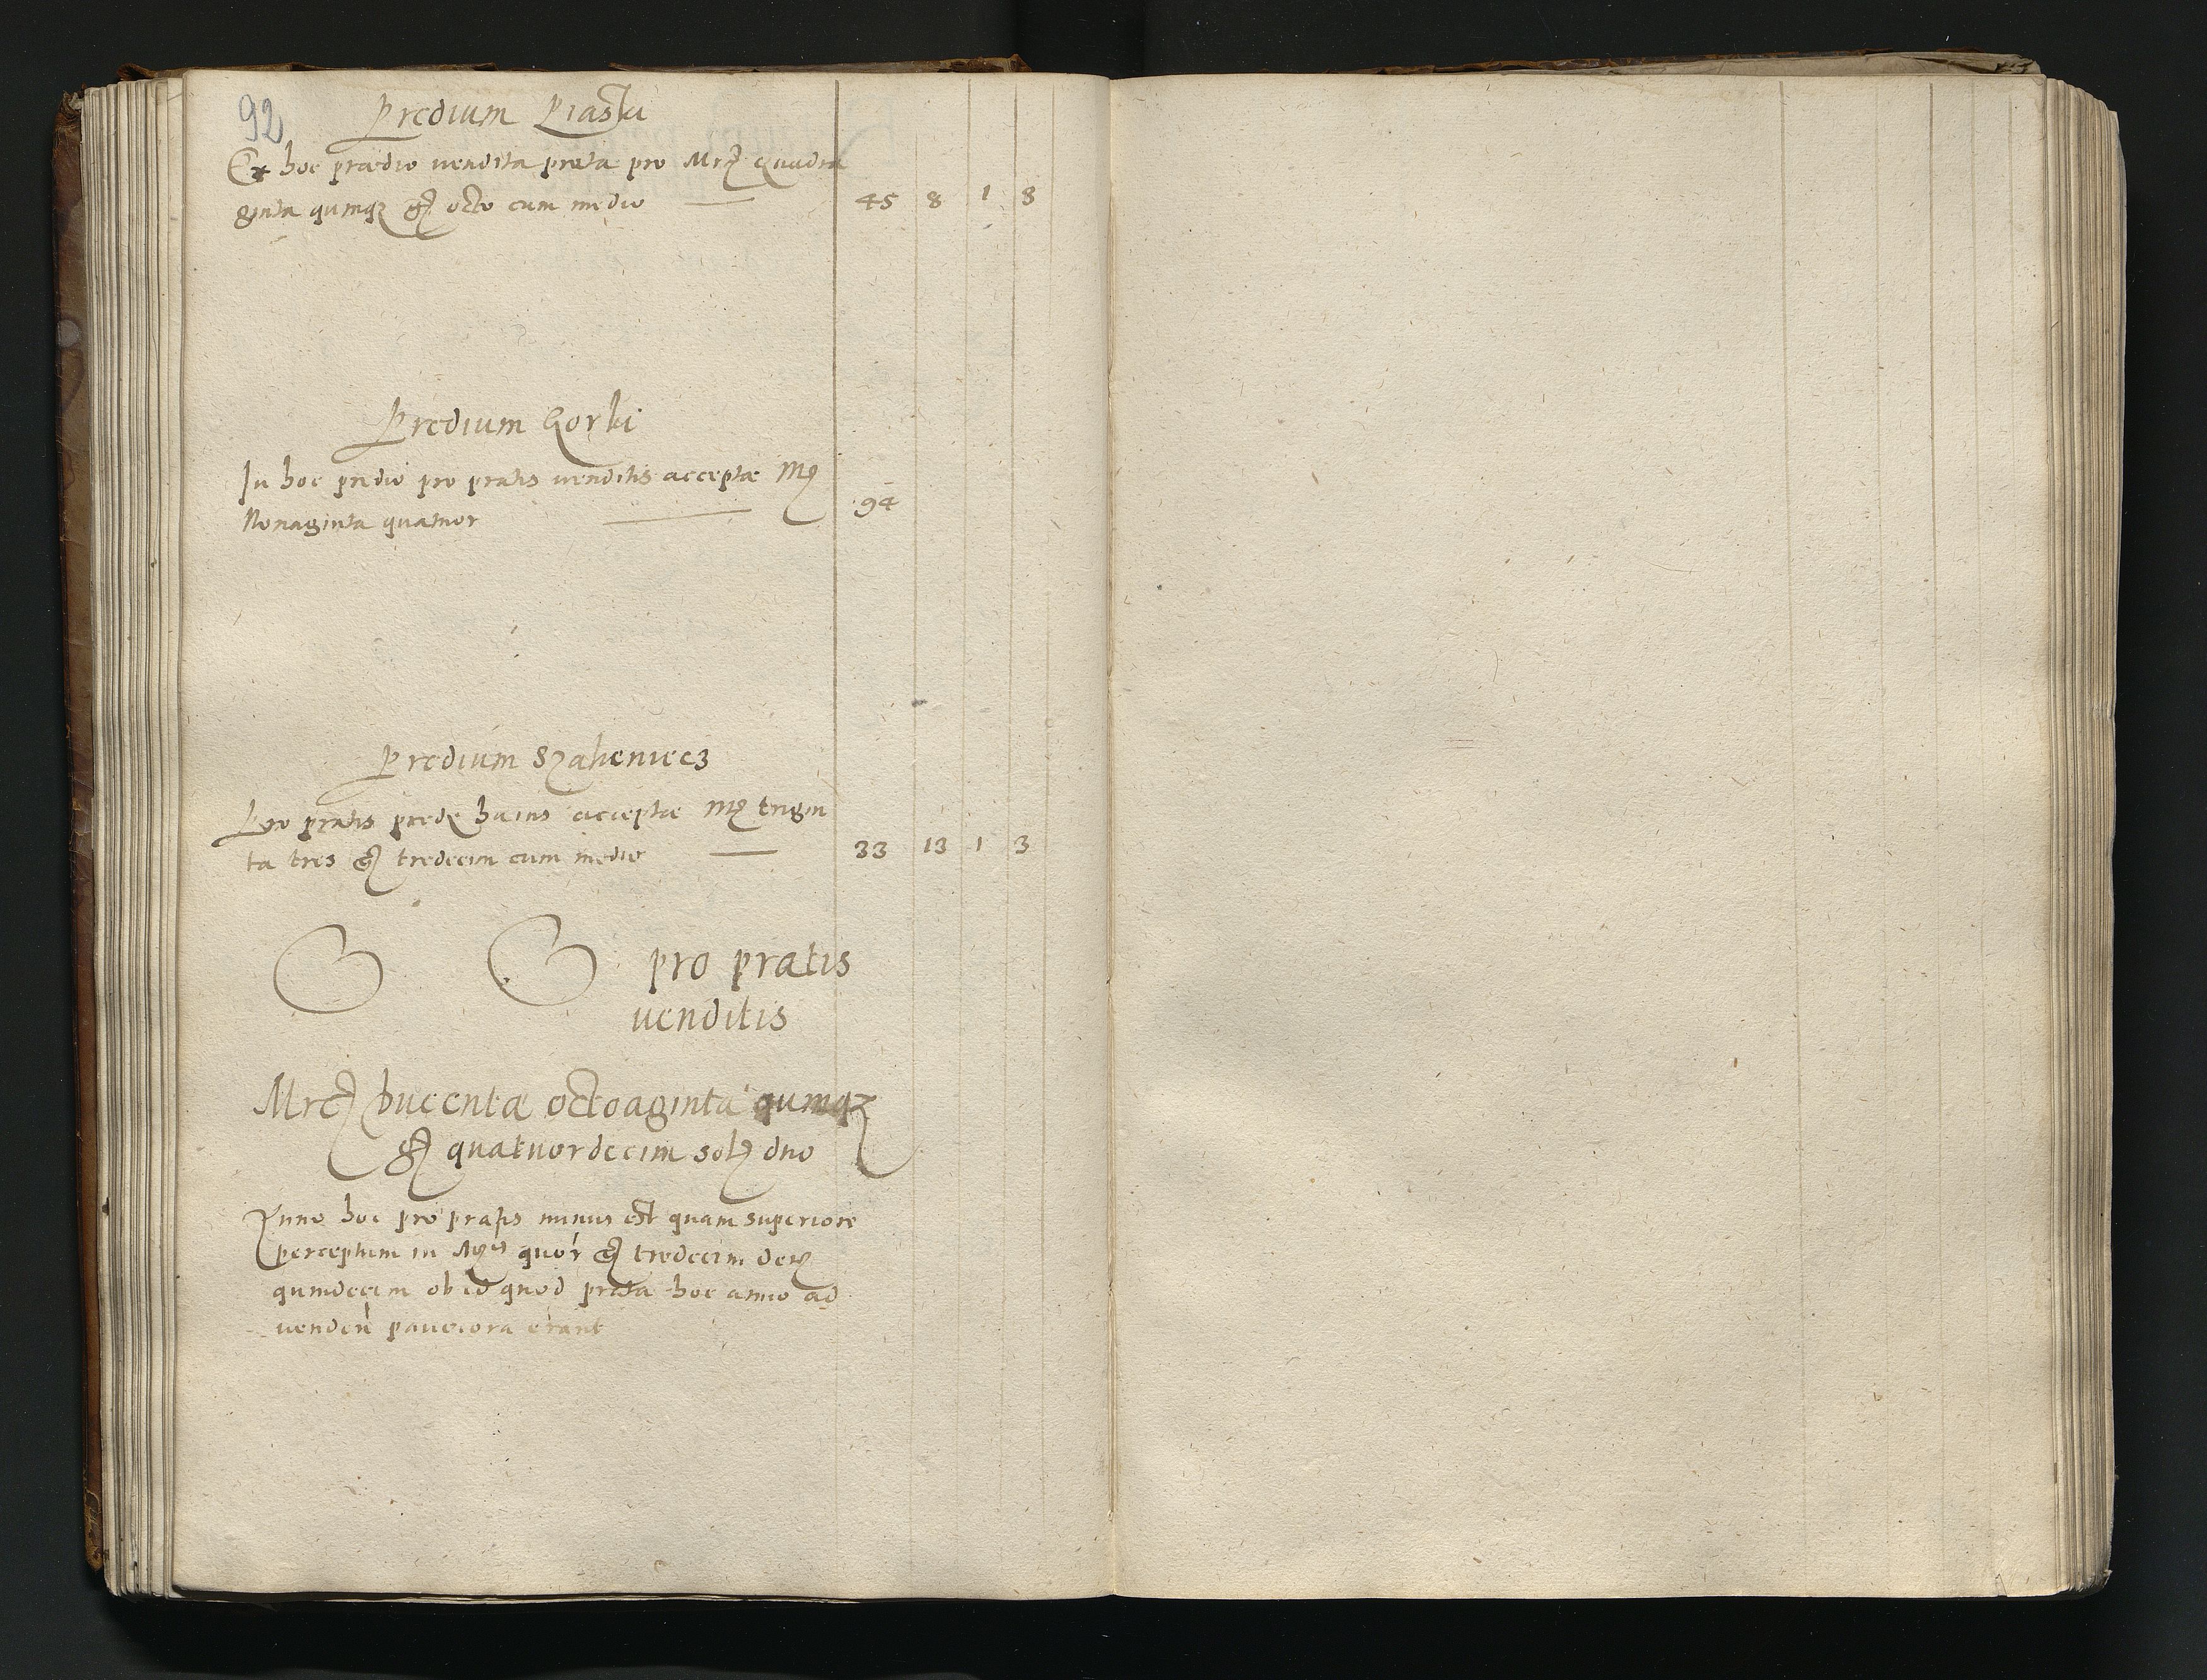 92
Predium Piaski
Ex hoc praedio vendita prata pro Mrc quadra
ginta quinqz gr octo cum medio 45 8 1 3
Predium Gorki
In hoc predio pro pratis venditis acceptae Mr
Nonaginta quatuor 94
Predium Szalieniecz
Pro pratis predy huius acceptae Mr trigin
ta tres gr tredecim cum medio 33 13 1 3
pro pratis
venditis
Mrc ducentae octoaginta quinqz
gr quatuordecim sol duo
Anno hoc pro pratis minus est quam superiore
perceptum in quor gr tredecim den
quindecim ob id quod prata hoc anno ad
venden pauciora erant